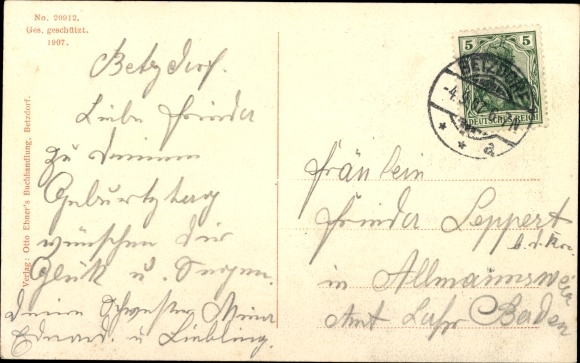 No. 20912.
Ges. geschützt.
1907.
Verlag: Otto Ebner's Buchhandlung, Betzdorf.
Betzdorf.
Liebe Frieda
Zu deinem
Geburtztag
wünschen dir
Glük u. Segen.
deine Schwester Mina
Eduard. u Liebling.
5 5
DEUTSCHES REICH
BETZDORF
Fräulein
Frieda Leppert
in Allmannsweier
Amt Lahr Baden